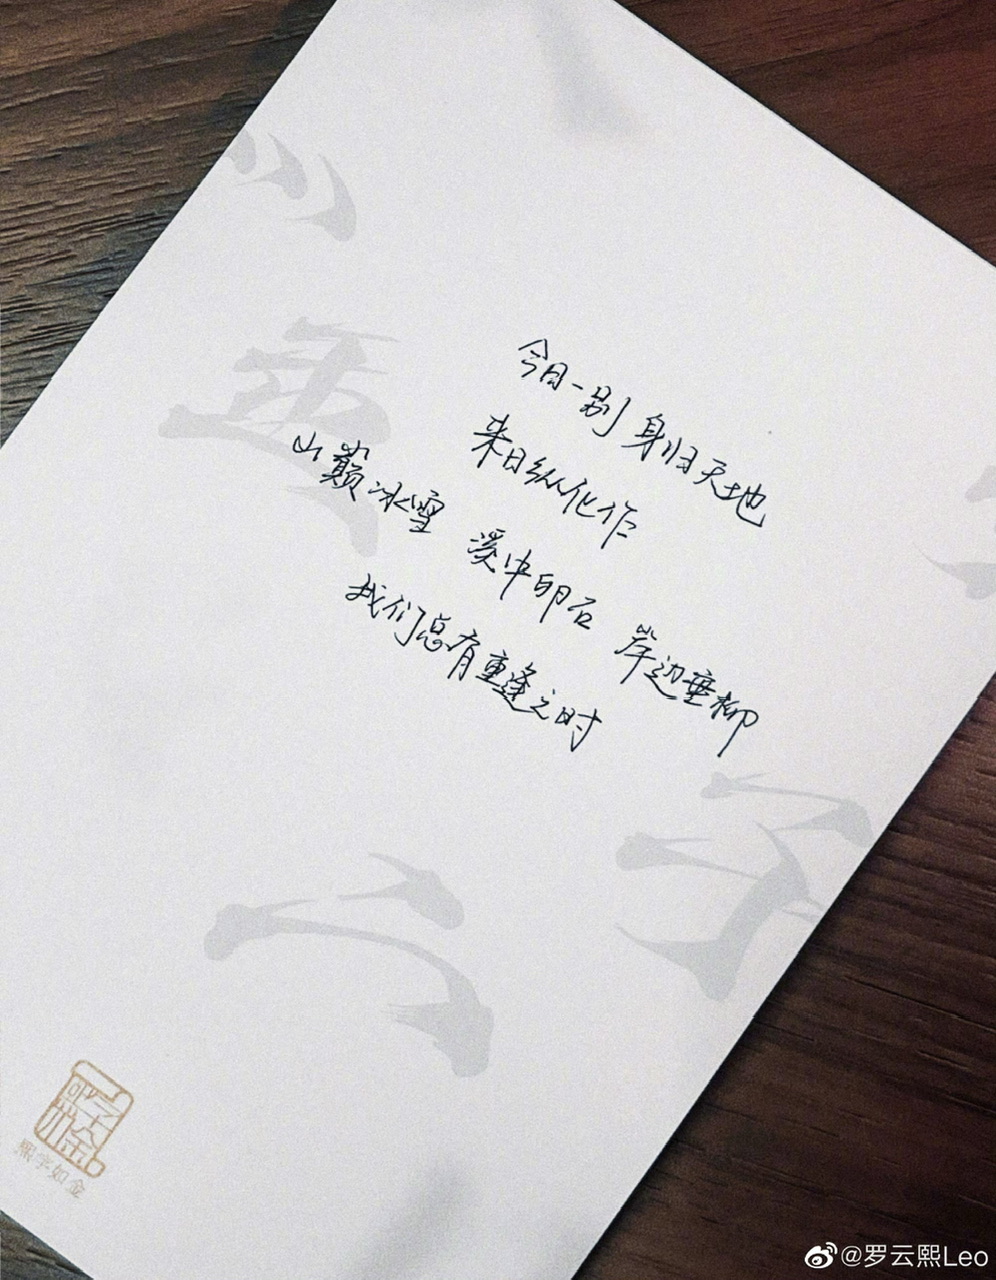 今日一别 身归天地
来日纵化作
山巅冰雪 溪中卵石 岸边垂柳
我们总有重逢之时
熙字如金
熙字如金
@罗云熙Leo